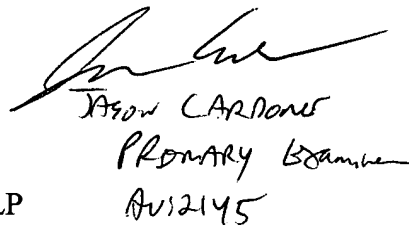 JASON CARDONE
PRIMARY Examiner
LP AU: 2145